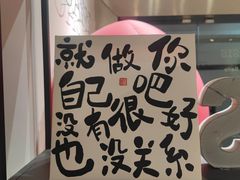 就做你
自己吧
没有很好
也没关系
S